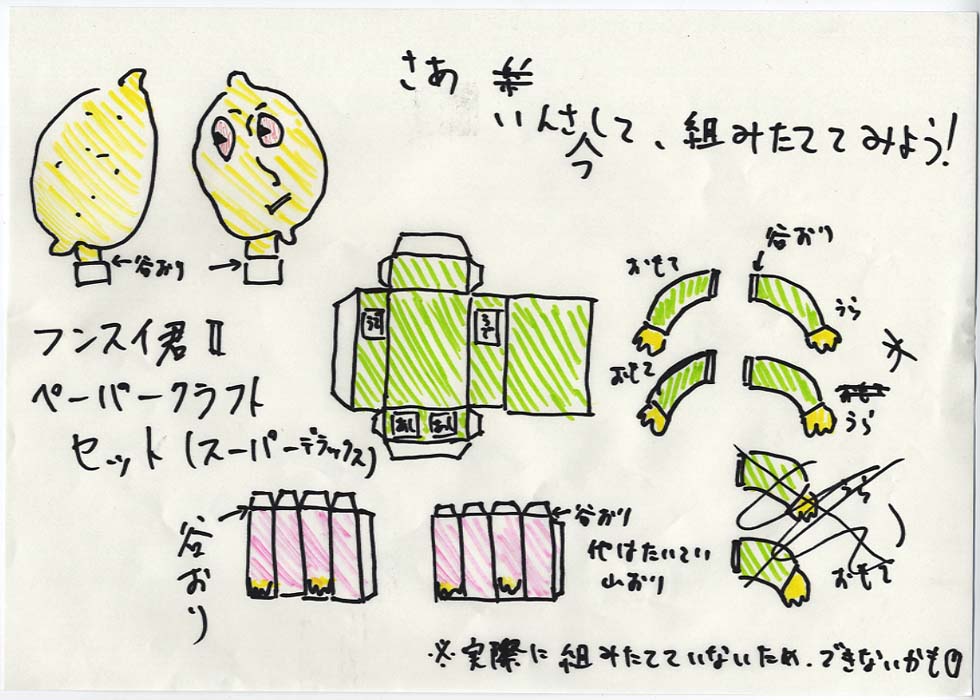 さあ
いんさつして、組みたててみよう!
谷おり
フンスイ君Ⅱ
ペーパークラフト
セット(スーパーデラックス)
うで
うで
あし
あし
谷おり
おもて
うら
おもて
うら
うら
おもて
谷おり
谷おり
代はたいてい
山おり
※実際に組みたてていないため、できないかも